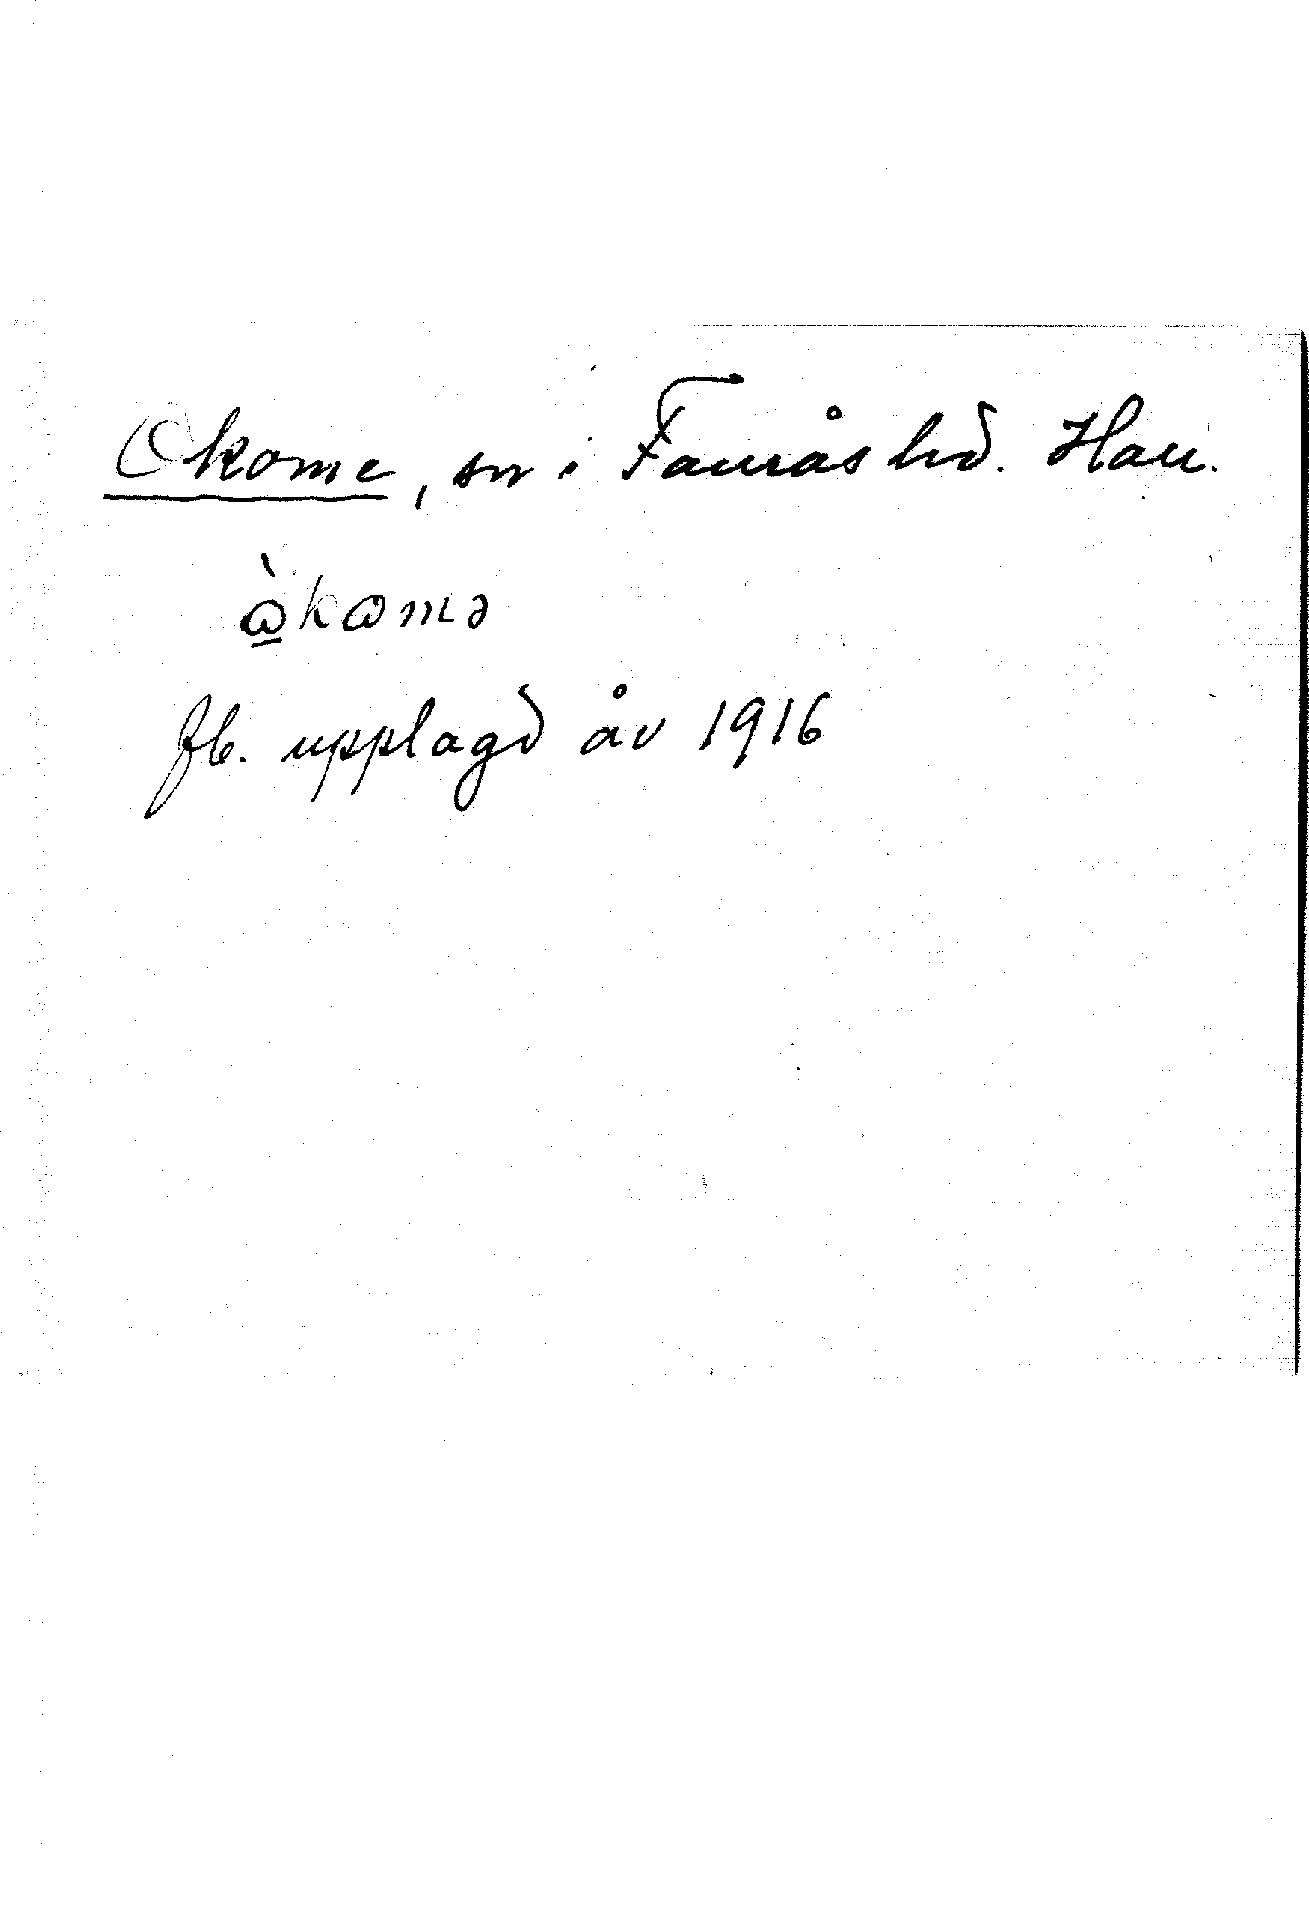 Okome, sn i Faurås hd. Hall.
ὼkωmə
fb. upplagd åv 1916